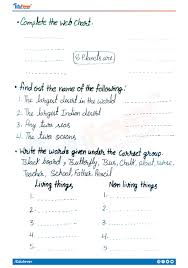 • Complete the web chart.
8 Planets are
• Find out the name of the following:
1. The largest desert in the world
2. The largest Indian desert
3. Any two seas
4. The two oceans
• Write the words given under the correct group.
Black board, Butterfly, Bus, Chalk,
Teacher, School, Father Pencil
Living things, Non living things,
1. 1.
2. 2.
3. 3.
4. 4.
5. 5.